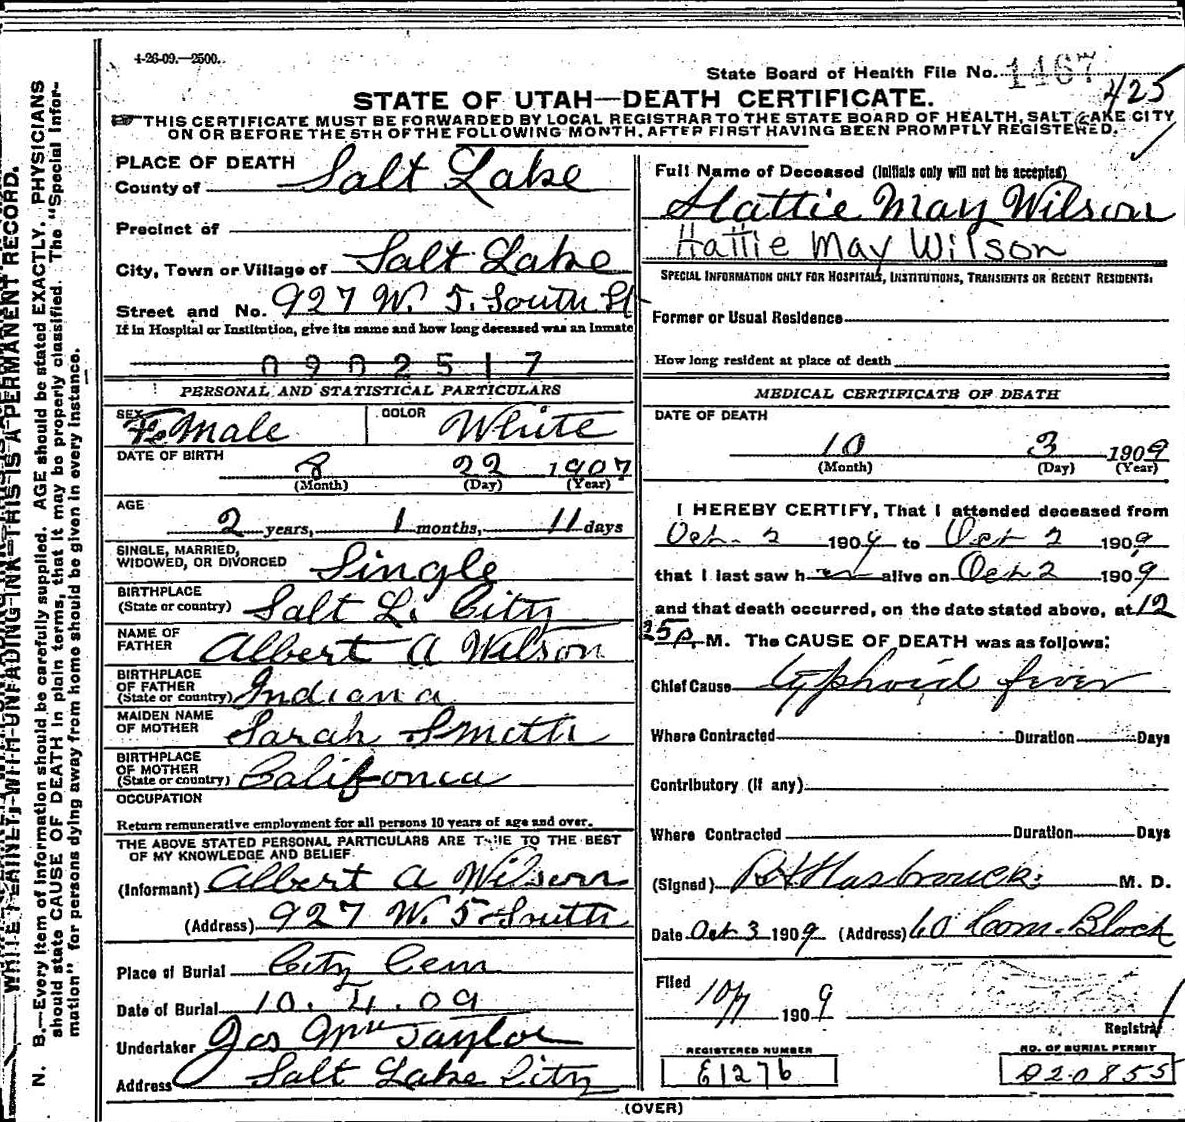 4-26-09.—2500.
State Board of Health File No. 1467
425
STATE OF UTAH—DEATH CERTIFICATE.
THIS CERTIFICATE MUST BE FORWARDED BY LOCAL REGISTRAR TO THE STATE BOARD OF HEALTH, SALT LAKE CITY
ON OR BEFORE THE 5TH OF THE FOLLOWING MONTH, AFTER FIRST HAVING BEEN PROMPTLY REGISTERED.
WRITE PLAINLY, WITH UNFADING INK—THIS IS A PERMANENT RECORD.
N. B.—Every item of information should be carefully supplied. AGE should be stated EXACTLY. PHYSICIANS
should state CAUSE OF DEATH in plain terms, that it may be properly classified. The "Special Infor-
mation" for persons dying away from home should be given in every instance.
PLACE OF DEATH
County of Salt Lake
Precinct of
City, Town or Village of Salt Lake
Street and No. 927 W. 5. South St
If in Hospital or Institution, give its name and how long deceased was an Inmate
0902517
PERSONAL AND STATISTICAL PARTICULARS
SEX Female COLOR White
DATE OF BIRTH
8 22 1907
(Month) (Day) (Year)
AGE
2 years, 1 months, 11 days
SINGLE, MARRIED,
WIDOWED, OR DIVORCED Single
BIRTHPLACE
(State or country) Salt L. City
NAME OF
FATHER Albert A Wilson
BIRTHPLACE
OF FATHER
(State or country) Indiana
MAIDEN NAME
OF MOTHER Sarah Smith
BIRTHPLACE
OF MOTHER
(State or country) Califonia
OCCUPATION
Return remunerative employment for all persons 10 years of age and over.
THE ABOVE STATED PERSONAL PARTICULARS ARE TRUE TO THE BEST
OF MY KNOWLEDGE AND BELIEF
(Informant) Albert A Wilson
(Address) 927 W. 5 South
Place of Burial City Cem
Date of Burial 10. 4. 09
Undertaker Jos Wm Taylor
Address Salt Lake City
Full Name of Deceased (Initials only will not be accepted)
Hattie May Wilson
Hattie May Wilson
SPECIAL INFORMATION ONLY FOR HOSPITALS, INSTITUTIONS, TRANSIENTS OR RECENT RESIDENTS:
Former or Usual Residence
How long resident at place of death
MEDICAL CERTIFICATE OF DEATH
DATE OF DEATH
10 3 1909
(Month) (Day) (Year)
I HEREBY CERTIFY, That I attended deceased from
Oct. 2 1909 to Oct 2 1909
that I last saw her alive on Oct 2 1909
and that death occurred, on the date stated above, at 12
25 p. M. The CAUSE OF DEATH was as follows:
Chief Cause Typhoid fever
Where Contracted Duration Days
Contributory (if any)
Where Contracted Duration Days
(Signed) Hasbrouck M. D.
Date Oct 3 1909 (Address) 60 Com. Block
Filed 10/7 1909
Registrar
REGISTERED NUMBER
E1276
NO. OF BURIAL PERMIT
A20855
(OVER)